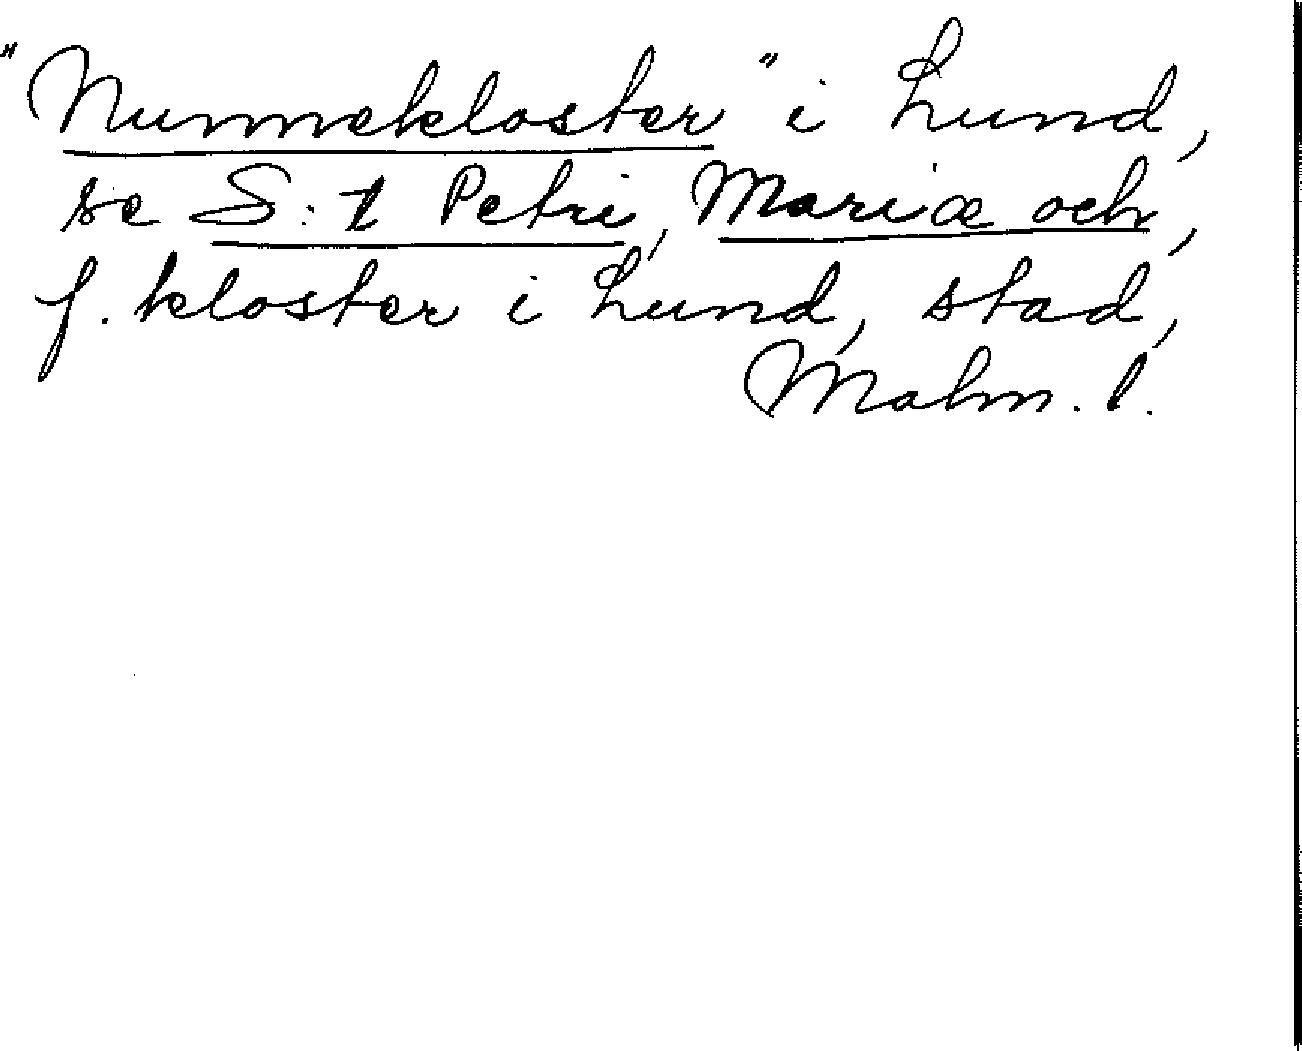 "Nunnekloster" i Lund,
se S:t Petri, Mariæ och,
f. kloster i Lund, stad,
Malm. l.